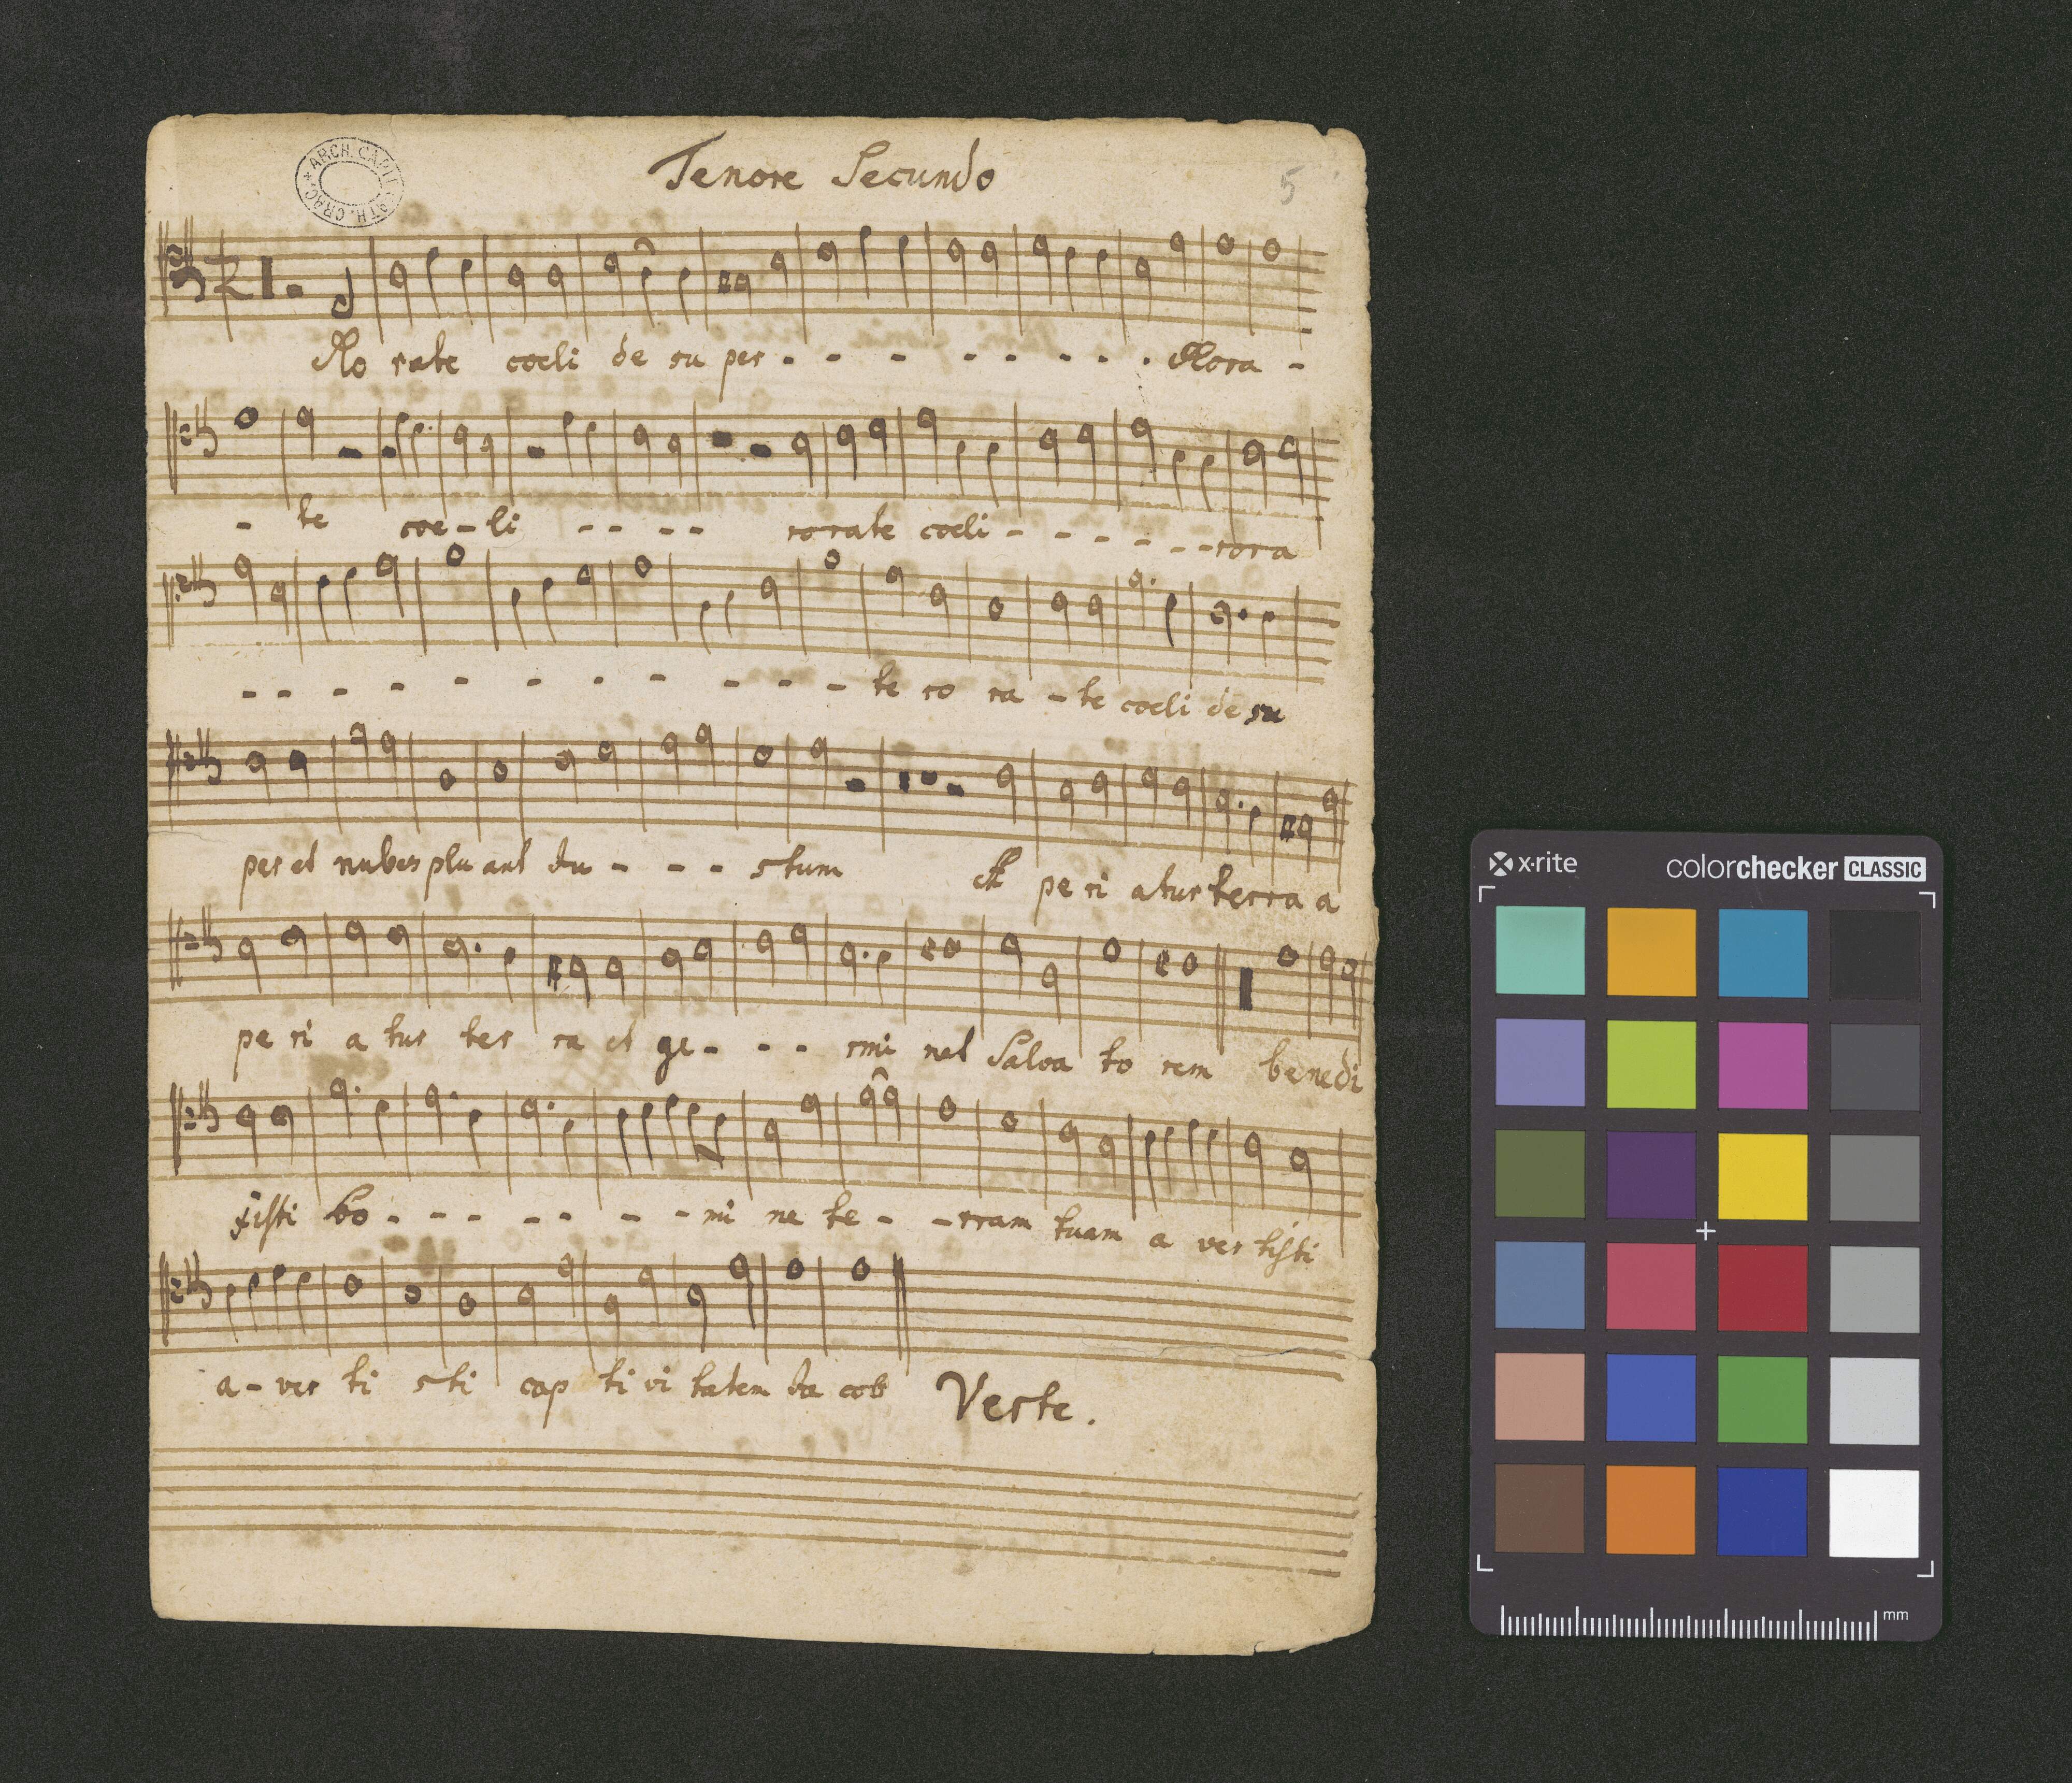 Tenore Secundo
5
ARCH. CAPIT. CATH. CRAC.
Rorate coeli de su per - - - - - - - - Rora -
- te coe - li - - - - rorate coeli - - - - - - rora
- - - - - - - - - - - te ro ra - te coeli de su
per et nubes plu ant Ju - - - stum et pe ri atur terra a
pe ri a tur ter ra et ge - - - rmi net Salva to rem benedi
xisti Do - - - - - - - mi ne te - - rram tuam a ver tisti
a - ver ti sti cap ti vi tatem Ja cob Verte.
x·rite colorchecker CLASSIC
mm